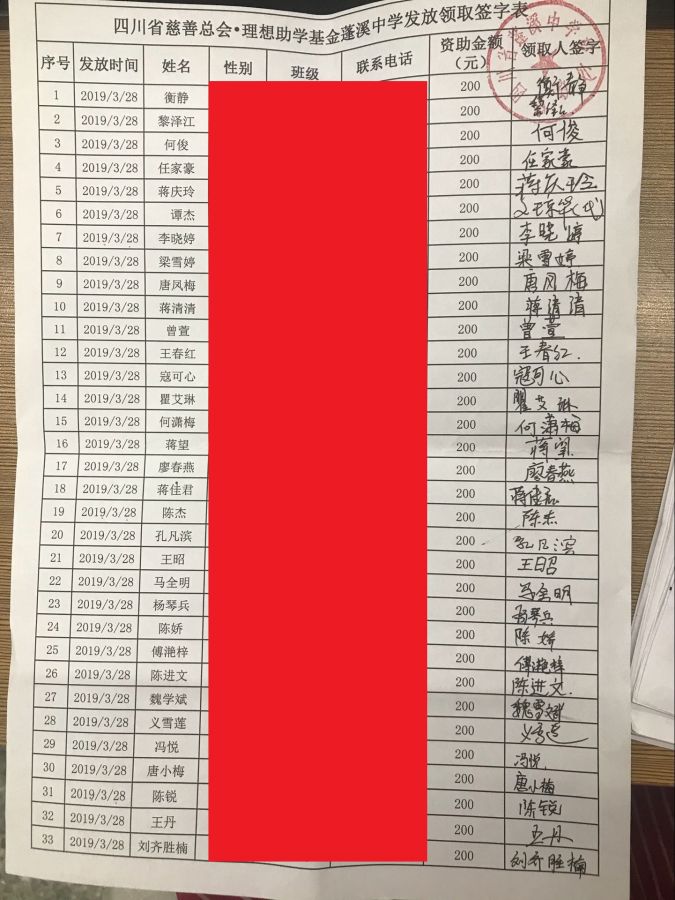 四川省慈善总会•理想助学基金蓬溪中学发放领取签字表
序号 发放时间 姓名 性别 班级 联系电话 资助金额（元） 领取人签字
1 2019/3/28 衡静 200 衡静
2 2019/3/28 黎泽江 200
3 2019/3/28 何俊 200 何俊
4 2019/3/28 任家豪 200 任家豪
5 2019/3/28 蒋庆玲 200 蒋庆玲
6 2019/3/28 谭杰 200
7 2019/3/28 李晓婷 200 李晓婷
8 2019/3/28 梁雪婷 200 梁雪婷
9 2019/3/28 唐凤梅 200 唐凤梅
10 2019/3/28 蒋清清 200 蒋清清
11 2019/3/28 曾萱 200 曾萱
12 2019/3/28 王春红 200 王春红.
13 2019/3/28 寇可心 200 寇可心
14 2019/3/28 瞿艾琳 200 瞿艾琳
15 2019/3/28 何潇梅 200 何潇梅
16 2019/3/28 蒋望 200 蒋望
17 2019/3/28 廖春燕 200 廖春燕
18 2019/3/28 蒋佳君 200 蒋佳君
19 2019/3/28 陈杰 200 陈杰
20 2019/3/28 孔凡滨 200 孔凡滨
21 2019/3/28 王昭 200 王昭
22 2019/3/28 马全明 200 马全明
23 2019/3/28 杨琴兵 200 杨琴兵
24 2019/3/28 陈娇 200 陈娇
25 2019/3/28 傅滟梓 200 傅滟梓
26 2019/3/28 陈进文 200 陈进文.
27 2019/3/28 魏学斌 200 魏学斌
28 2019/3/28 义雪莲 200 义雪莲
29 2019/3/28 冯悦 200 冯悦.
30 2019/3/28 唐小梅 200 唐小梅
31 2019/3/28 陈锐 200 陈锐
32 2019/3/28 王丹 200 王丹
33 2019/3/28 刘齐胜楠 200 刘齐胜楠